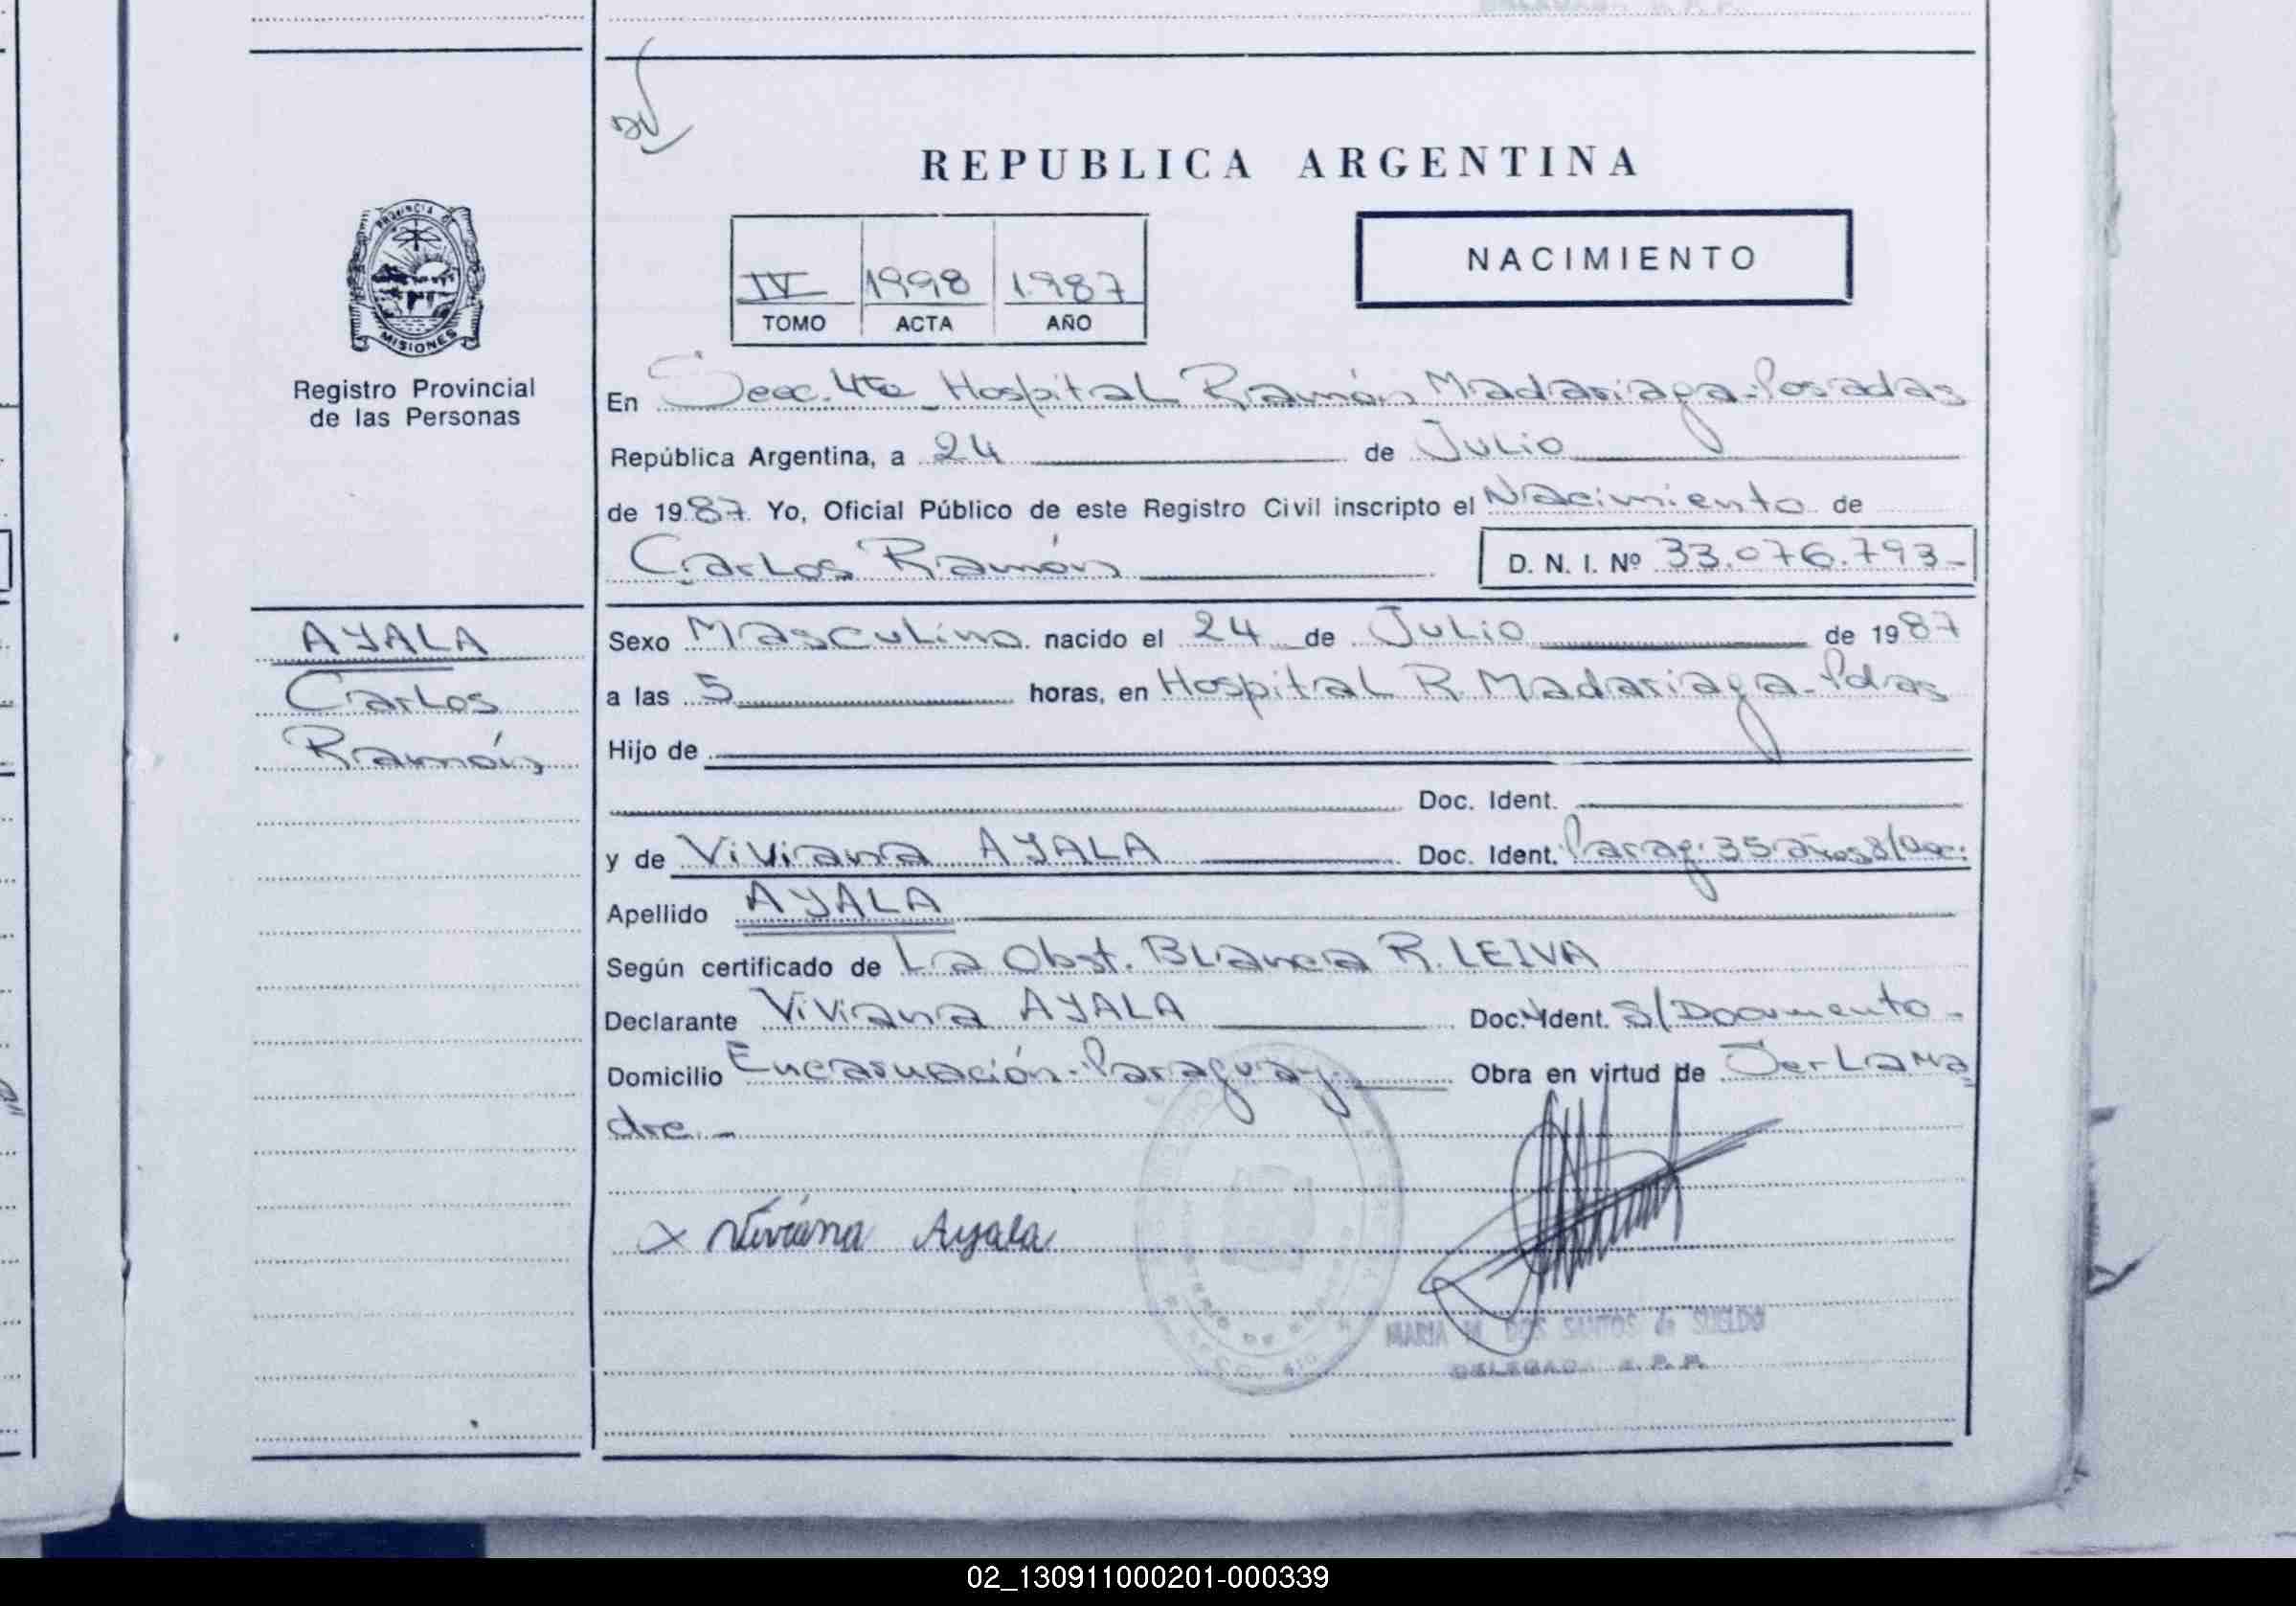 REPUBLICA ARGENTINA
PROVINCIA DE
MISIONES
Registro Provincial
de las Personas
IV 1998 1987
TOMO ACTA AÑO
NACIMIENTO
En Secc. 4ta Hospital Ramón Madariaga-Posadas
República Argentina, a 24 de Julio
de 1987 Yo, Oficial Público de este Registro Civil inscripto el Nacimiento de
Carlos Ramón D. N. I. Nº 33.076.793-
AYALA
Carlos
Ramón
Sexo Masculino nacido el 24 de Julio de 1987
a las 5 horas, en Hospital R. Madariaga-Pdas
Hijo de
Doc. Ident.
y de Viviana AYALA Doc. Ident. Parag. 35 años s/Doc.
Apellido AYALA
Según certificado de La Obst. Blanca R. LEIVA
Declarante Viviana AYALA Doc. Ident. S/Documento-
Domicilio Encarnación-Paraguay Obra en virtud de Ser La Ma
dre.-
x Viviana Ayala
MARIA M. DOS SANTOS de SUELDO
DELEGADA R. P. P.
02_130911000201-000339